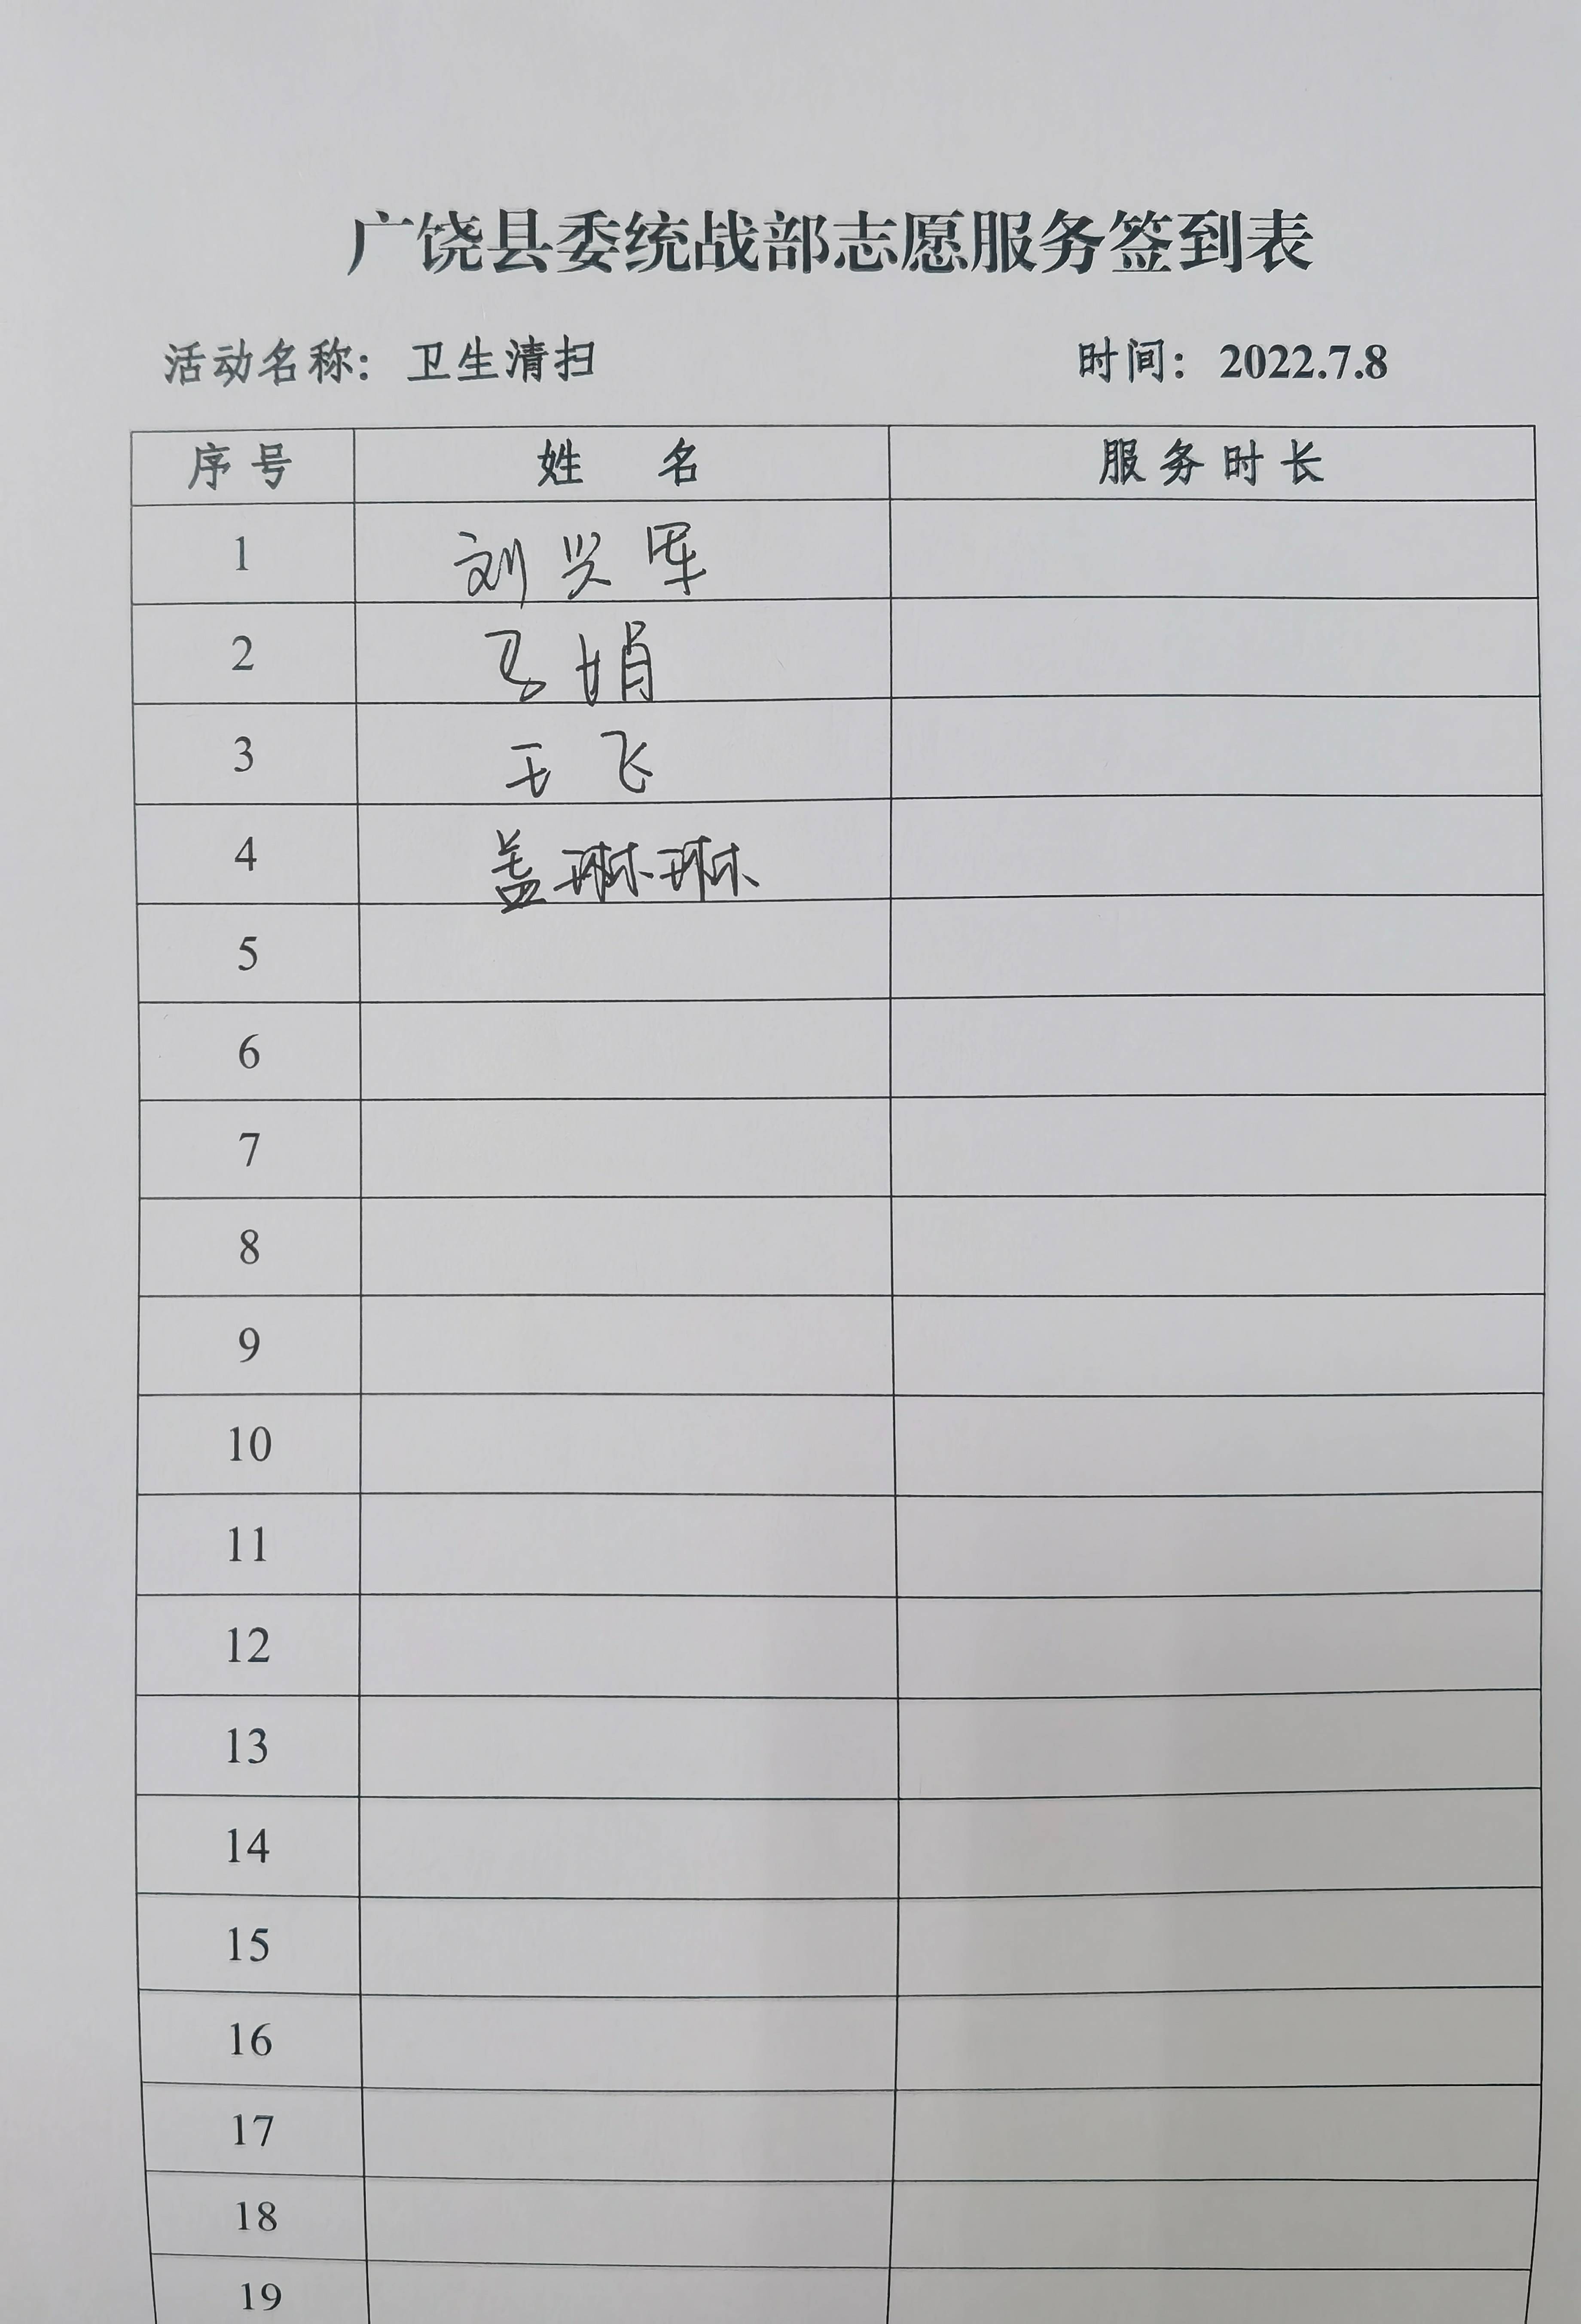 广饶县委统战部志愿服务签到表
活动名称：卫生清扫 时间：2022.7.8
序号 姓名 服务时长
1 刘兴军
2 马娟
3 王飞
4 盖琳琳
5
6
7
8
9
10
11
12
13
14
15
16
17
18
19